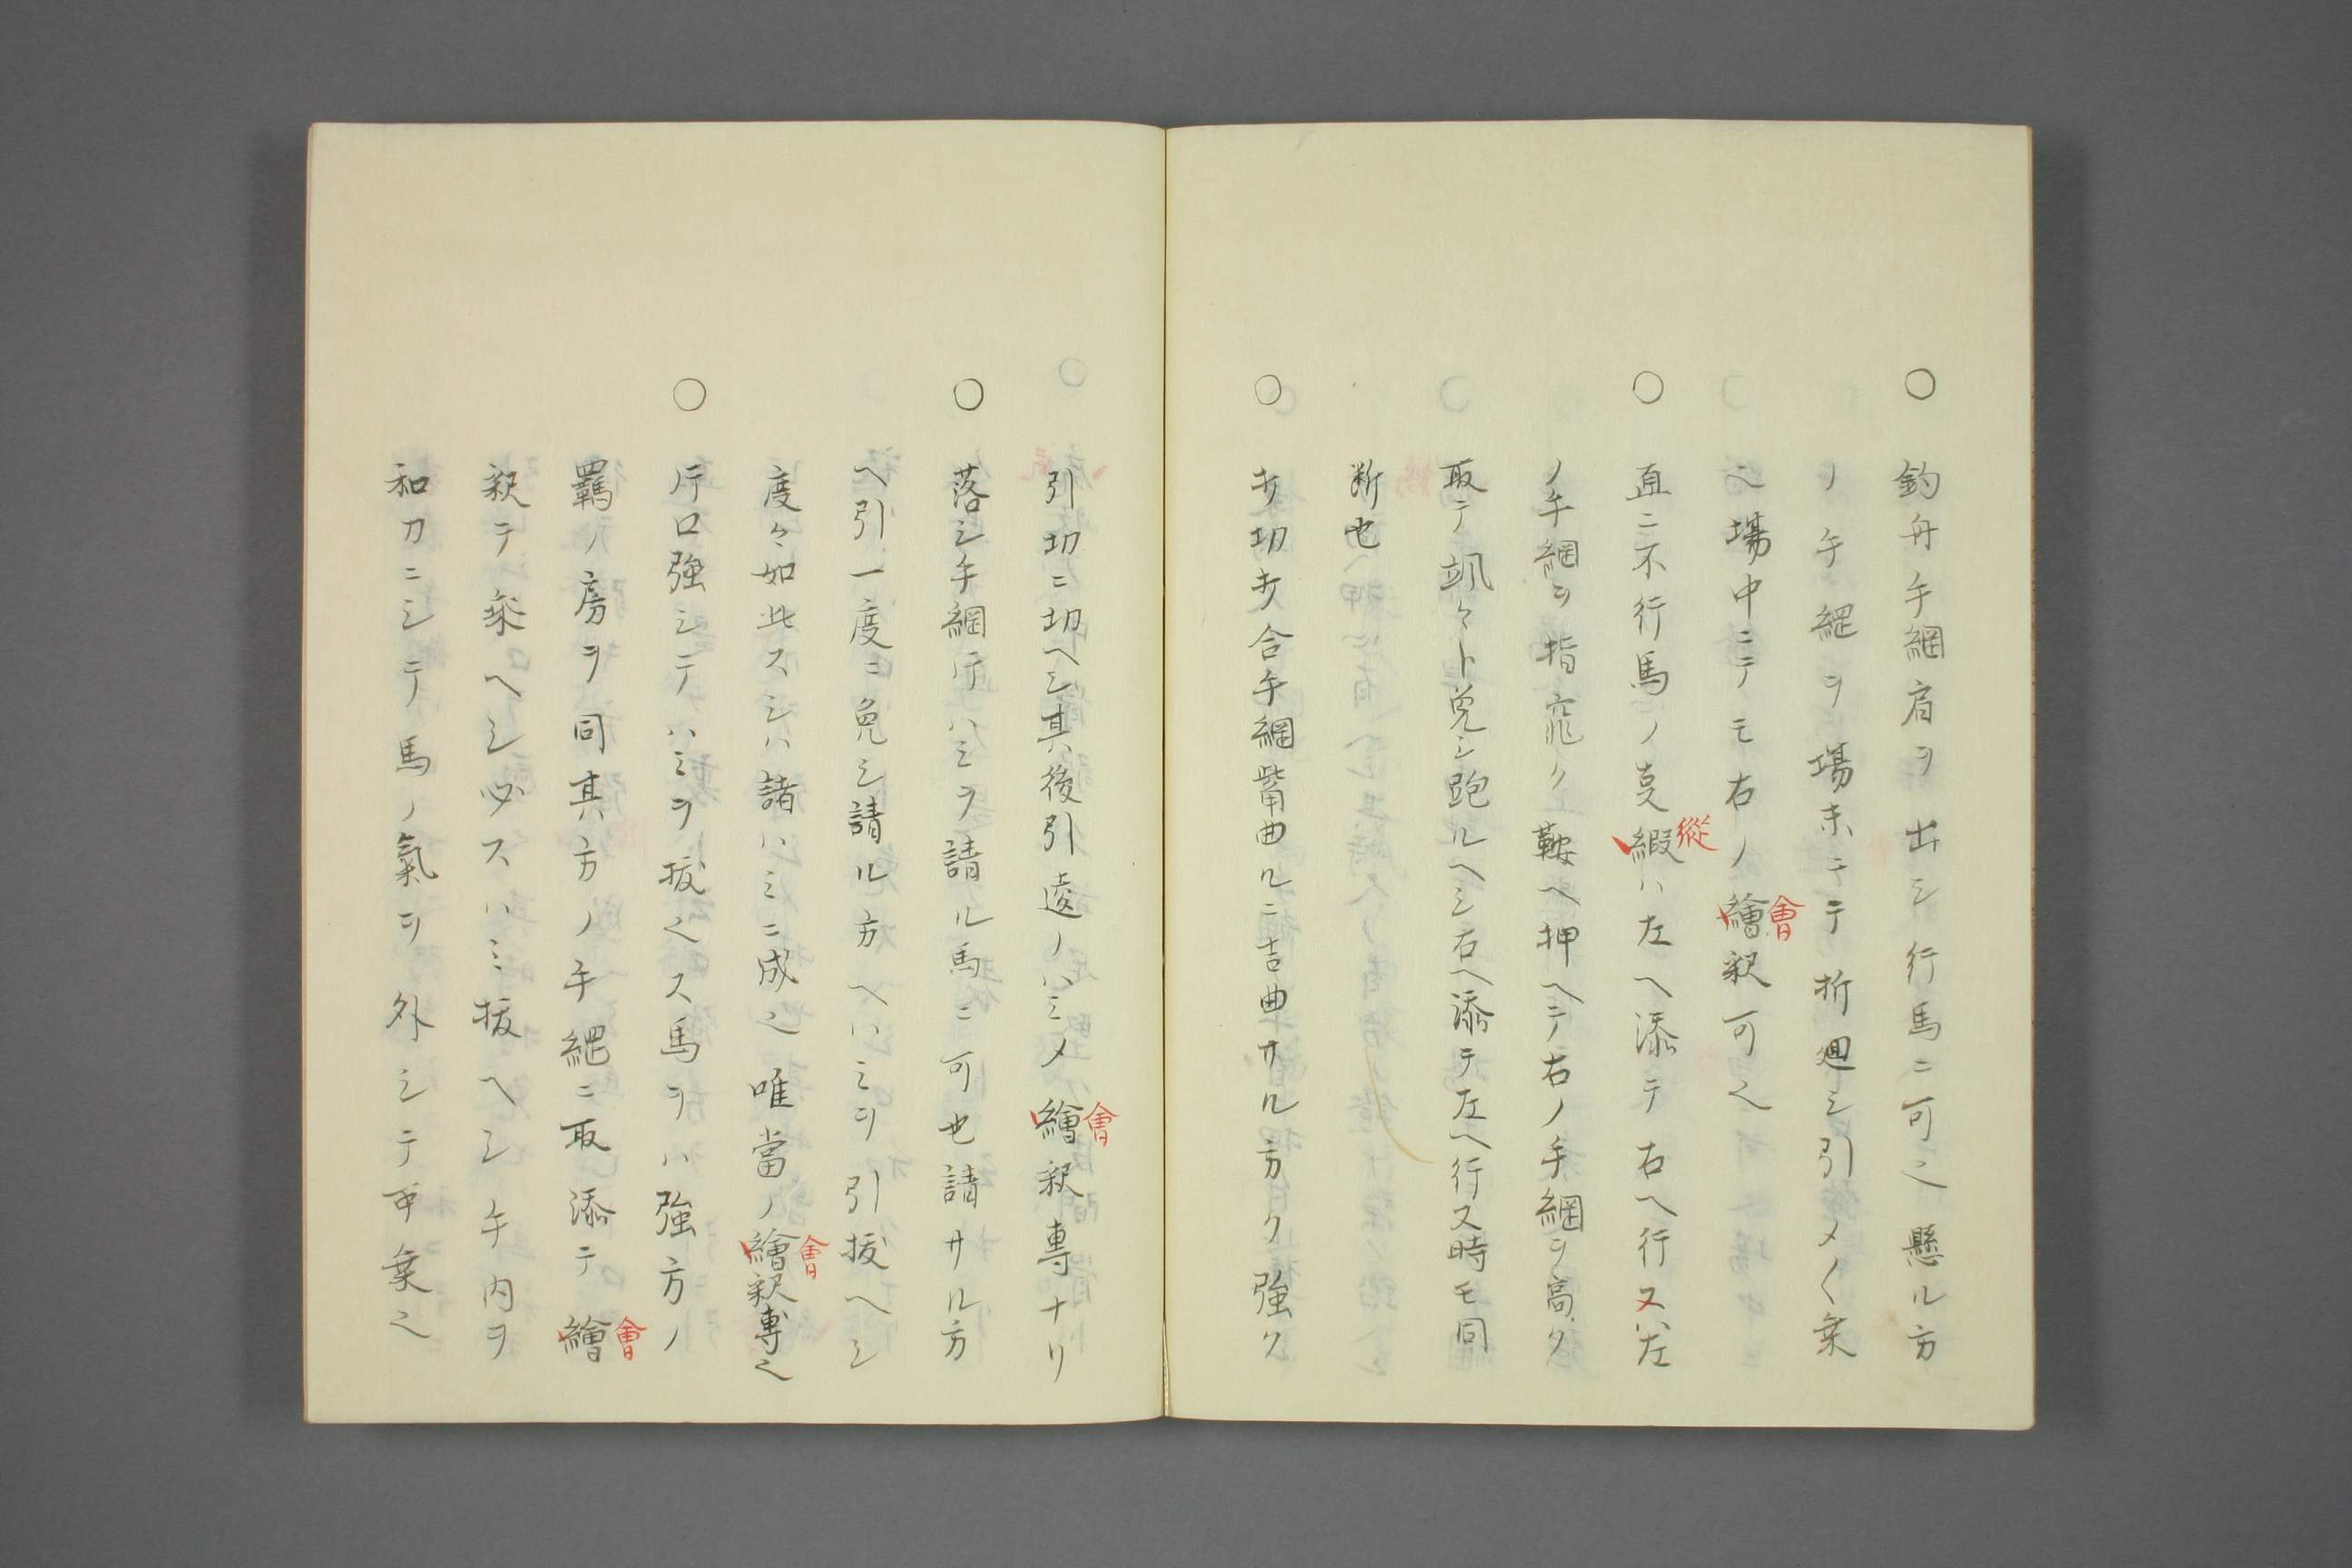 ○ 釣舟手綱肩ヲ出シ行馬ニ可之懸ル方
ノ手綱ヲ場末ニテ折廻シ引〆〱乗
之場中ニテモ右ノ繪釈可之
會
○ 直ニ不行馬ノ㕝縀ハ左ヘ添テ右ヘ行又ハ左
縱
ノ手綱ヲ指寵ク鞍ヘ押ヘテ右ノ手綱ヲ高ク
取テ颯々ト免シ跑ルヘシ右ヘ添テ左ヘ行ス時モ同
断也
○ 切合手綱觜曲ルニ吉曲サル方ク強ク
引切ニ切ヘシ其後引遠ノハミメ繪釈專ナリ
會
○ 落シ手綱片ハミヲ請ル馬ニ可也請サル方
ヘ引一度ニ免シ請ル方ヘハミヲ引拔ヘシ
度々如此スシハ諸ハミニ成之唯當ノ繪釈專之
會
○ 片口強シテハミヲ拔之ス馬ヲハ強方ノ
羈ノ房ヲ同其方ノ手綱ニ取添テ繪
會
釈テ乗ヘシ必スハミ拔ヘシ手内ヲ
和カニシテ馬ノ氣ヲ外シテ乗之